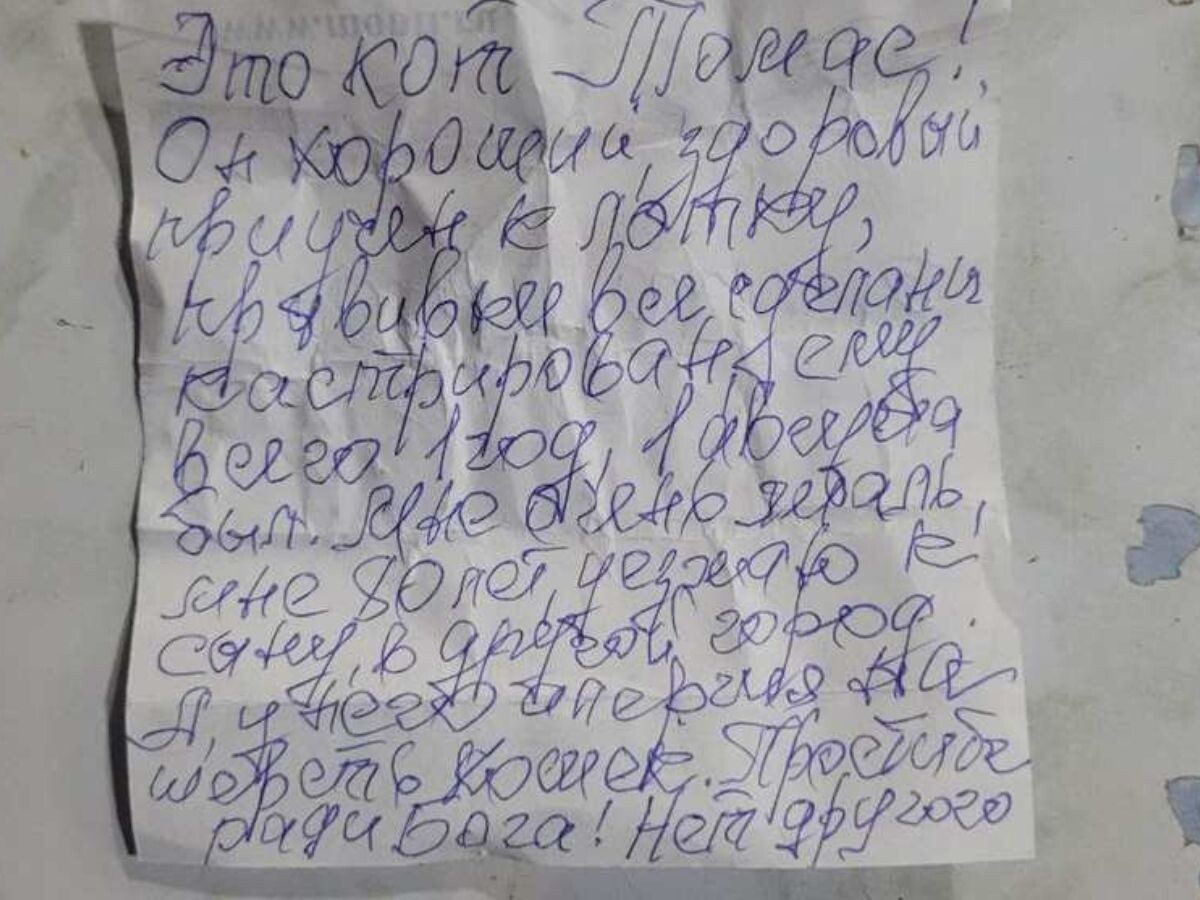 Это кот Томас!
Он хороший, здоровый,
приучен к лотку,
прививки все сделаны
кастрирован, ему
всего 1 год, 1 августа
был. Мне очень жаль,
мне 80 лет, уезжаю к
сыну, в другой город.
А, у него алергия на
шерсть кошек. Простите
ради Бога! Нет другого